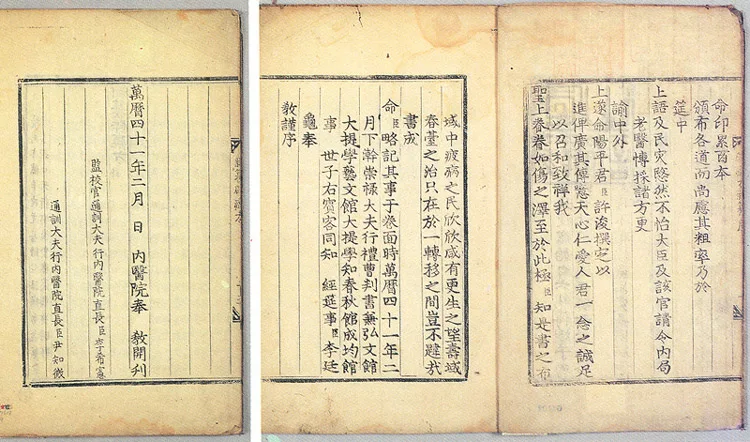 命印累百本
頒布各道而尚慮其粗率乃於
筵中
上語及民灾愍然不怡大臣及該官請令內局
老醫博採諸方更
諭中外
上遂命陽平君臣許浚撰定以
進俾廣其傳噫天心仁愛人君一念之誠足
以召和致祥我
聖上眷眷如傷之澤至於此極臣知是書之布
域中疲病之民欣欣咸有更生之望壽域
春臺之治只在於一轉移之間豈不韙哉
書成
命臣略記其事于卷面時萬曆四十一年二
月下澣崇祿大夫行禮曹判書兼弘文館
大提學藝文館大提學知春秋館成均館
事 世子右賓客同知 經筵事臣李廷
龜奉
教謹序
萬曆四十一年二月 日 內醫院奉 教開刊
監校官通訓大夫行內醫院直長臣李希憲
通訓大夫行內醫院直長臣尹知微